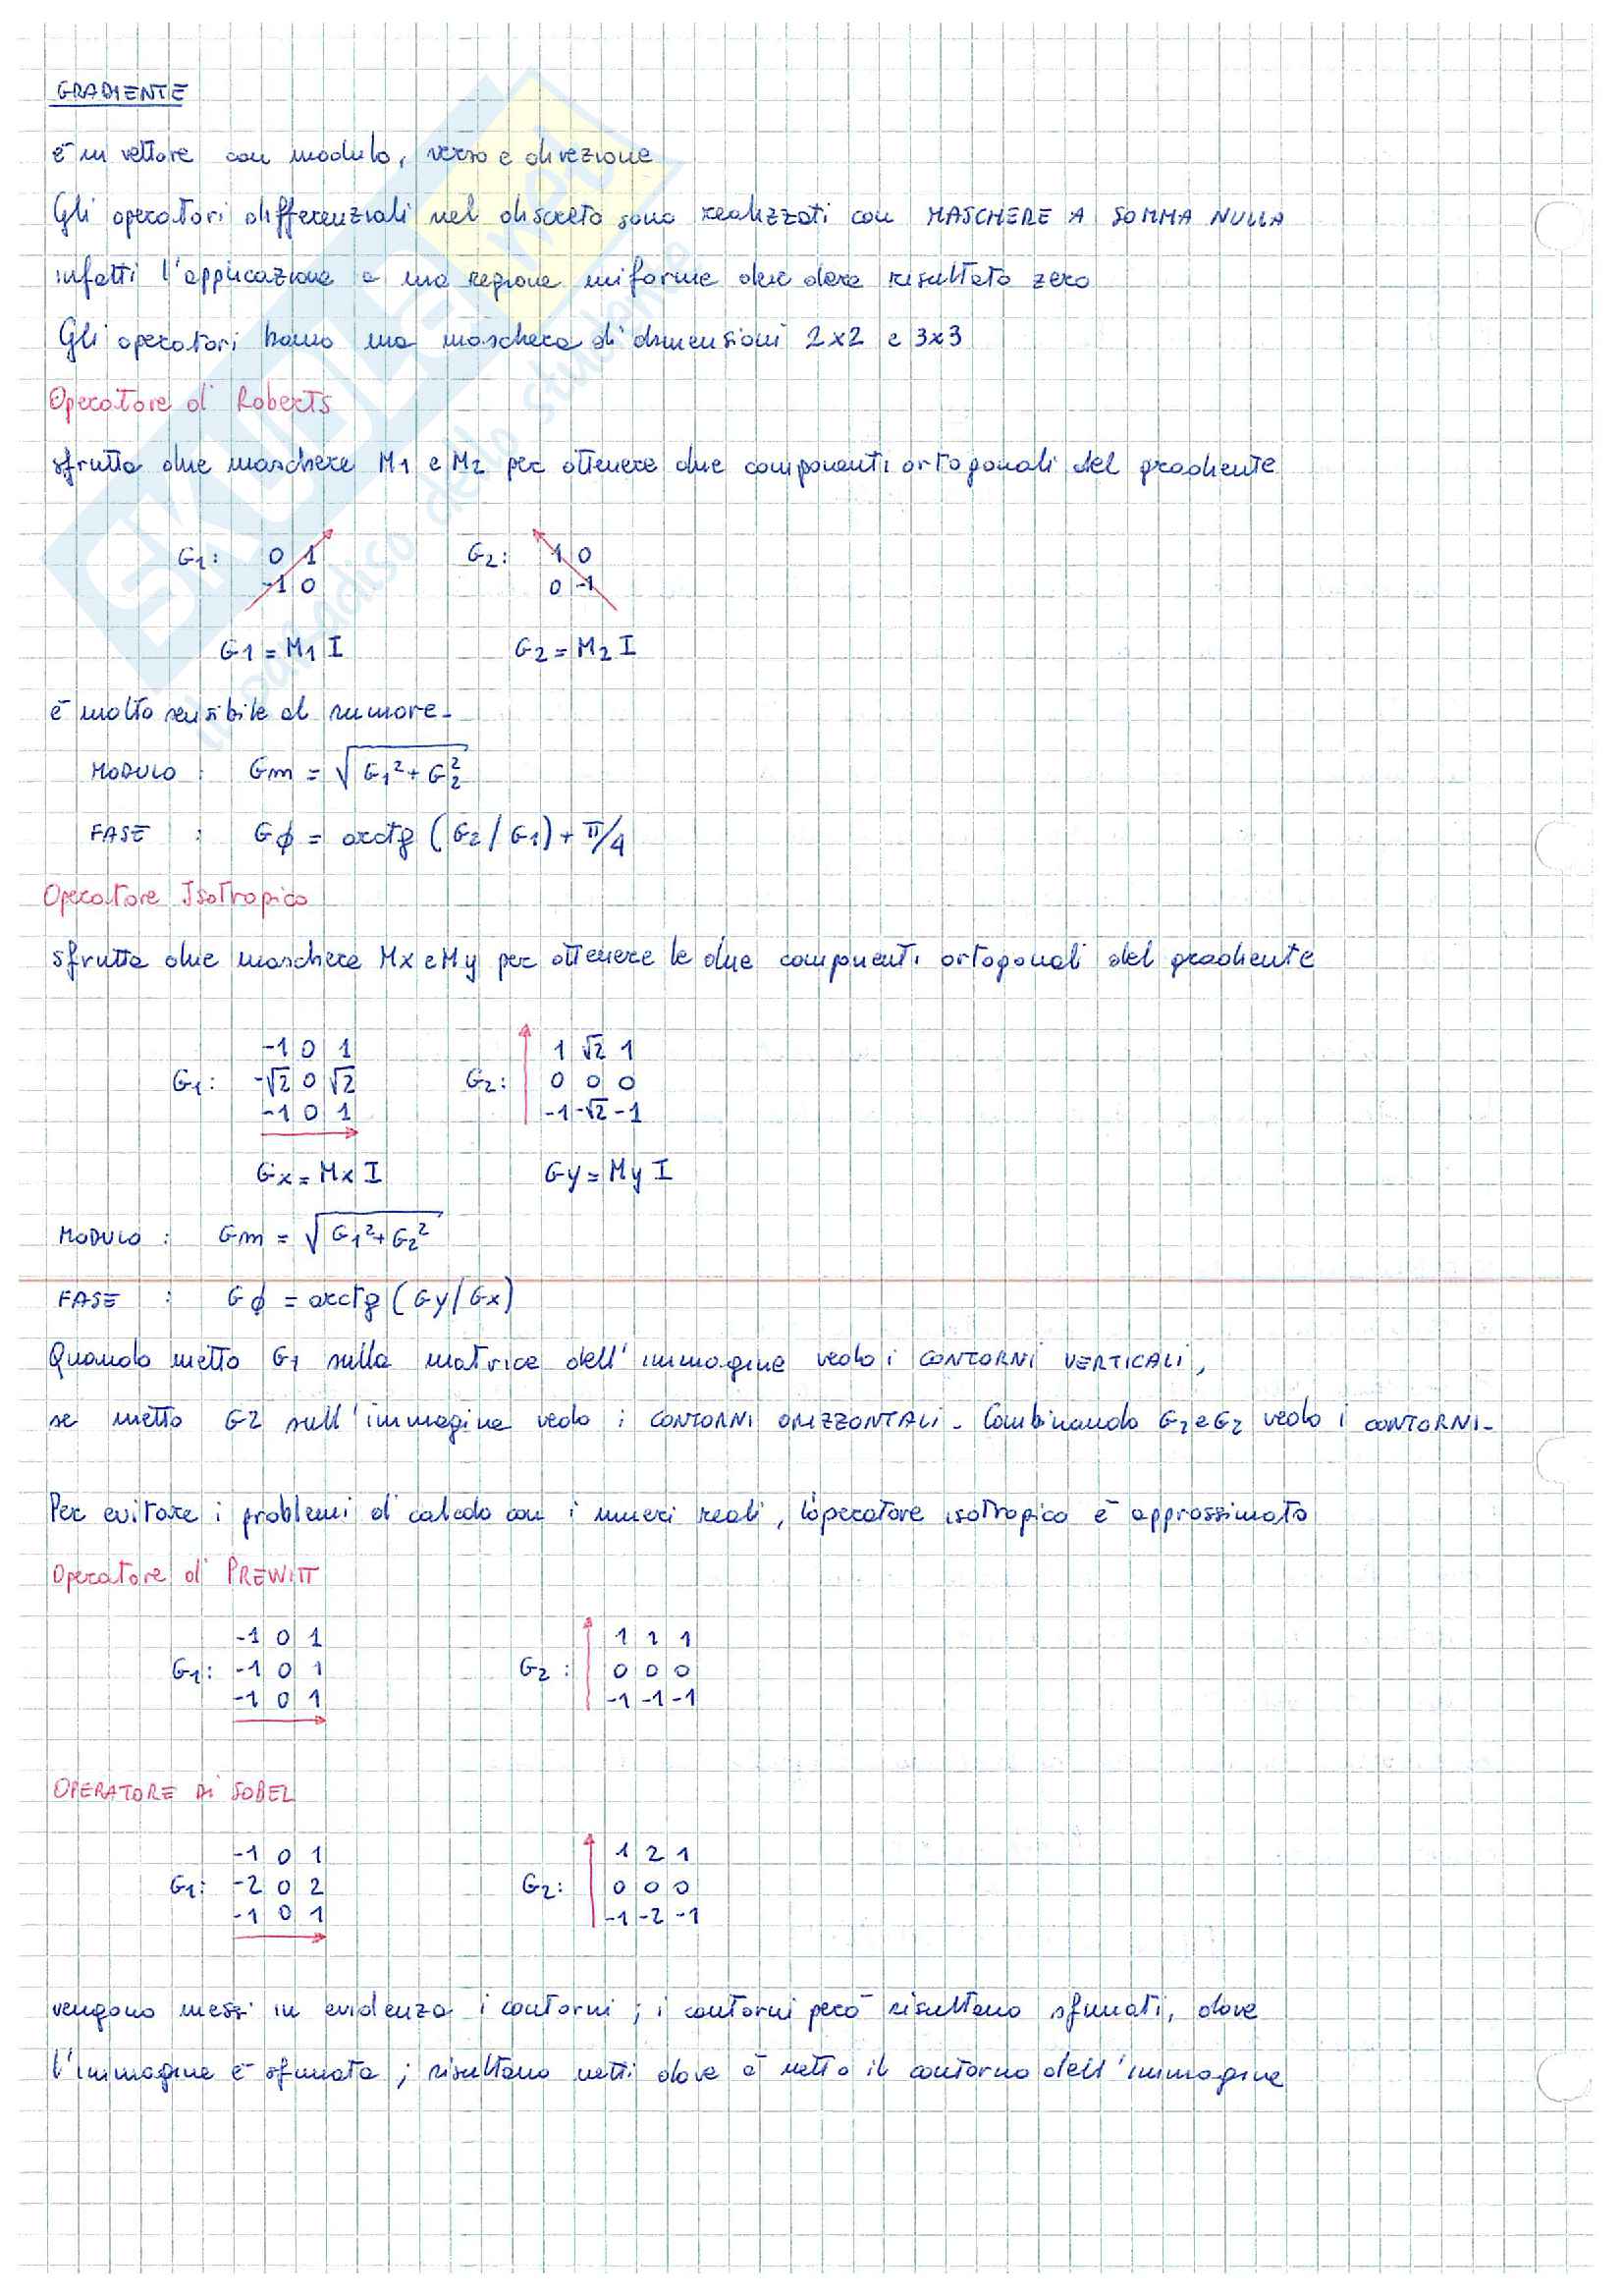 GRADIENTE
è un vettore con modulo, verso e direzione
Gli operatori differenziali nel discreto sono realizzati con MASCHERE A SOMMA NULLA
infatti l'applicazione a una regione uniforme deve dare risultato zero
Gli operatori hanno una maschera di dimensioni 2x2 e 3x3
Operatore di Roberts
sfrutta due maschere M1 e M2 per ottenere due componenti ortogonali del gradiente
G1: 0 1 G2: 1 0
-1 0 0 -1
G1 = M1 I G2 = M2 I
è molto sensibile al rumore.
MODULO : Gm = √(G1² + G2²)
FASE : Gϕ = arctg (G2/G1) + π/4
Operatore Isotropico
sfrutta due maschere Mx e My per ottenere le due componenti ortogonali del gradiente
-1 0 1 1 √2 1
G1: -√2 0 √2 G2: 0 0 0
-1 0 1 -1 -√2 -1
Gx = Mx I Gy = My I
MODULO : Gm = √(G1² + G2²)
FASE : Gϕ = arctg (Gy/Gx)
Quando metto G1 sulla matrice dell'immagine vedo i CONTORNI VERTICALI,
se metto G2 sull'immagine vedo i CONTORNI ORIZZONTALI. Combinando G2 e G2 vedo i CONTORNI.
Per evitare i problemi di calcolo con i numeri reali, l'operatore isotropico è approssimato
Operatore di PREWITT
-1 0 1 1 1 1
G1: -1 0 1 G2 : 0 0 0
-1 0 1 -1 -1 -1
OPERATORE Di SOBEL
-1 0 1 1 2 1
G1: -2 0 2 G2: 0 0 0
-1 0 1 -1 -2 -1
vengono messi in evidenza i contorni ; i contorni però risultano sfumati, dove
l'immagine è sfumata ; risultano netti dove è netto il contorno dell'immagine
SKUOLA.net
il paradiso dello studente